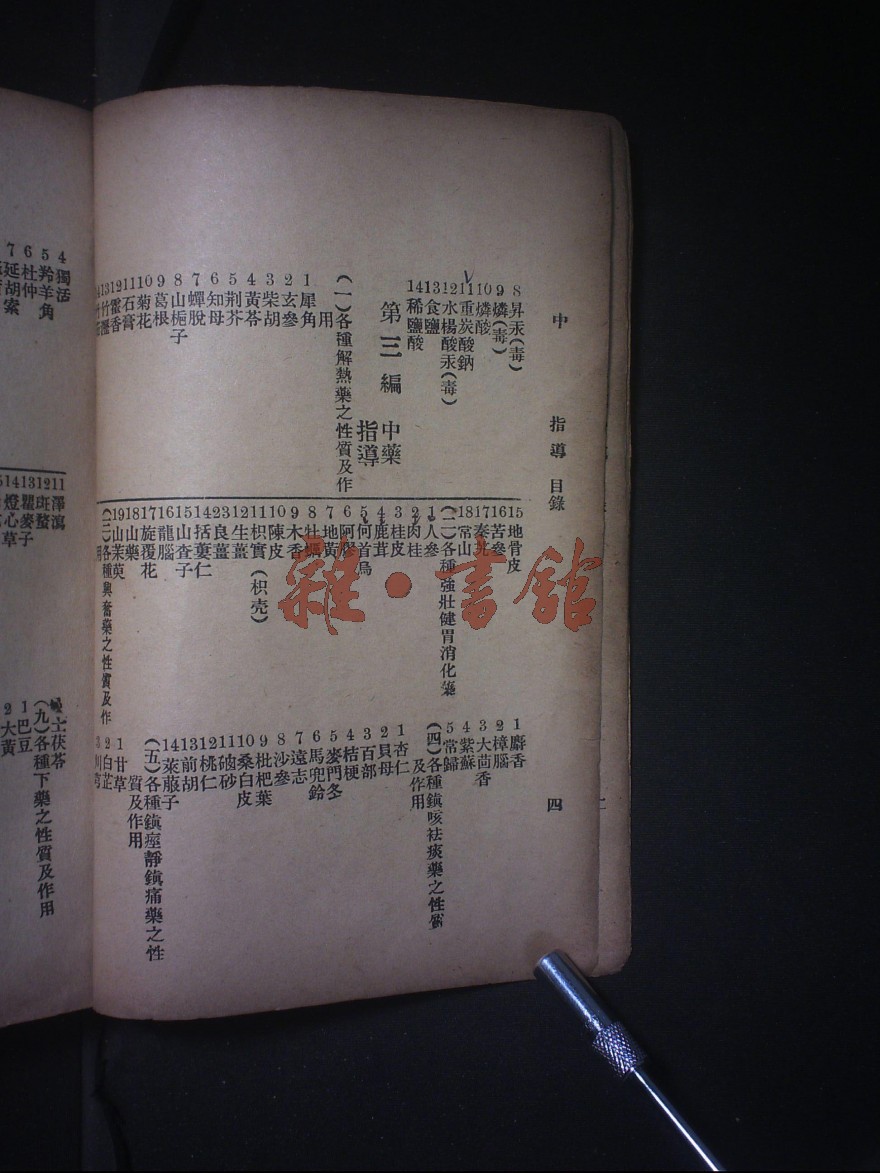 中
指導
目錄
四
8昇汞(毒)
9燐(毒)
10燐酸
11重炭酸鈉
12水楊酸汞(毒)
13食鹽
14稀鹽酸
第三編 中藥
指導
(一)各種解熱藥之性質及作
用
1犀角
2玄參
3柴胡
4黃芩
5荆芥
6知母
7蟬脫
8山梔子
9葛根
10菊花
11石膏
12霍香
13竹瀝
15地骨皮
16苦參
17秦艽
18常山
(二)各種強壯健胃消化藥
1人參
2肉桂
3桂皮
4鹿茸
5何首烏
6阿膠
7地黃
8牡蠣
9木香
10陳皮
11枳實(枳壳)
12生薑
13良薑
14括蔞仁
15山查子
16龍腦
17旋覆花
18山藥
19山茱萸
(三)各種興奮藥之性質及作
用
1麝香
2樟腦
3大茴香
4紫蘇
5常歸
(四)各種鎮咳祛痰藥之性質
及作用
1杏仁
2貝母
3百部
4桔梗
5麥門冬
6馬兜鈴
7遠志
8沙參
9枇杷葉
10桑白皮
11硇砂
12桃仁
13前胡
14萊菔子
(五)各種鎮痙靜鎮痛藥之性
質及作用
1甘草
2白芷
3川芎
4獨活
5羚羊角
6杜仲
7延胡索
11澤瀉
12斑蝥
13瞿麥子
14燈心草
土茯苓
(九)各種下藥之性質及作用
1巴豆
2大黃
雜·書館